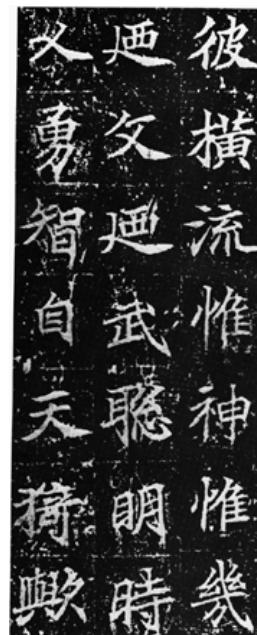 彼橫流惟神惟幾
廼文廼武聰明時
乂勇智自天猗歟